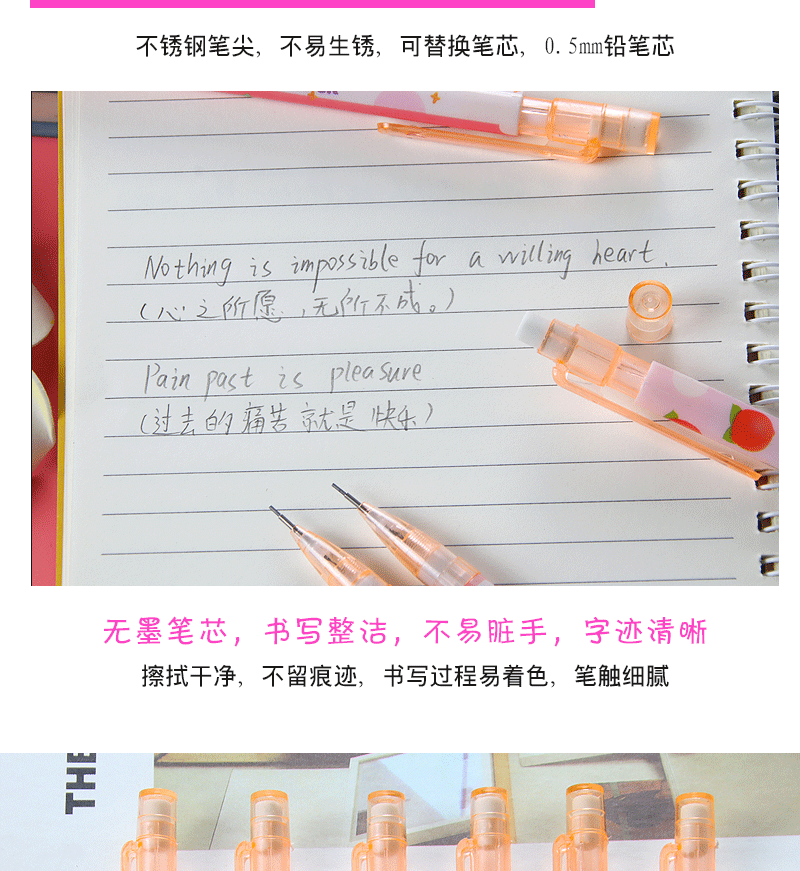 不锈钢笔尖, 不易生锈, 可替换笔芯, 0.5mm铅笔芯
Nothing is impossible for a willing heart.
(心之所愿,无所不成。)
Pain past is pleasure
(过去的痛苦就是快乐)
无墨笔芯, 书写整洁, 不易脏手, 字迹清晰
擦拭干净, 不留痕迹, 书写过程易着色, 笔触细腻
THE